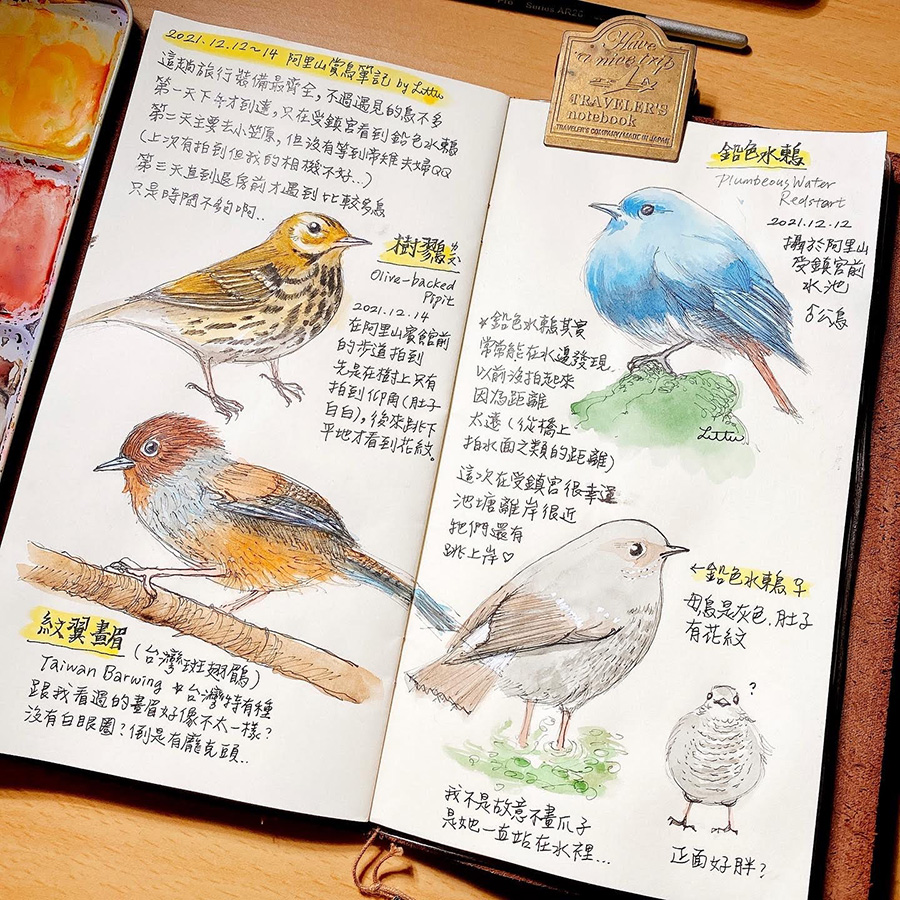 2021.12.12~14 阿里山賞鳥筆記 by Littu
這趟旅行裝備最齊全,不過遇見的鳥不多
第一天下午才到達,只在受鎮宮看到鉛色水鶇
第二天主要去小笠原,但沒有等到帝雉夫婦QQ
(上次有拍到但我的相機不好..)
第三天直到退房前才遇到比較多鳥
只是時間不夠啊..
樹鷚
Olive-backed
Pipit
2021.12.14
在阿里山賓館前
的步道拍到
先是在樹上只有
拍到仰角(肚子
白白),後來跳下
平地才看到花紋。
紋翼畫眉
(台灣斑翅鶥)
Taiwan Barwing *台灣特有種
跟我看過的畫眉好像不太一樣?
沒有白眼圈?倒是有龐克頭..
Have
a nice trip
TRAVELER'S
notebook
TRAVELER'S COMPANY MADE IN JAPAN
Series AR20
鉛色水鶇
Plumbeous Water
Redstart
2021.12.12
攝於阿里山
受鎮宮前
水池
♂公鳥
Littu
*鉛色水鶇其實
常常能在水邊發現
以前沒拍起來
因為距離
太遠(從橋上
拍水面之類的距離)
這次在受鎮宮很幸運
池塘離岸很近
牠們還有
跳上岸♡
←鉛色水鶇♀
母鳥是灰色,肚子
有花紋
?
我不是故意不畫爪子
是她一直站在水裡...
正面好胖?